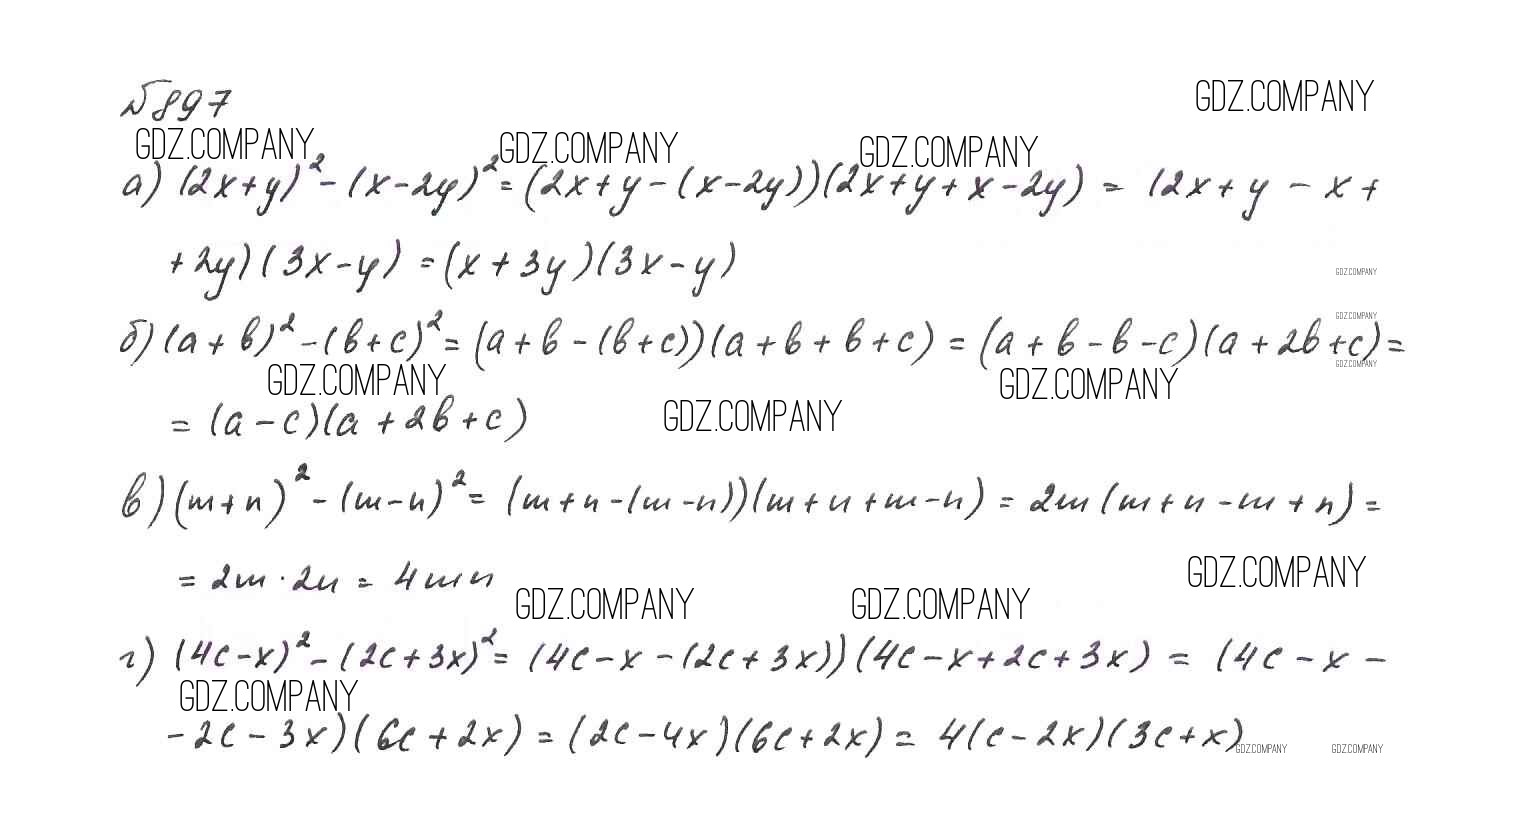 №897
GDZ.COMPANY
GDZ.COMPANY GDZ.COMPANY GDZ.COMPANY
а) (2x+y)²-(x-2y)²=(2x+y-(x-2y))(2x+y+x-2y) = (2x+y-x+
+2y)(3x-y) =(x+3y)(3x-y)
GDZ.COMPANY
GDZ.COMPANY
б)(a+b)²-(b+c)²=(a+b-(b+c))(a+b+b+c) = (a+b-b-c)(a+2b+c)=
GDZ.COMPANY GDZ.COMPANY GDZ.COMPANY
= (a-c)(a+2b+c)
GDZ.COMPANY
в)(m+n)²-(m-n)²= (m+n-(m-n))(m+n+m-n) = 2m(m+n-m+n)=
= 2m·2n = 4mn
GDZ.COMPANY
GDZ.COMPANY GDZ.COMPANY
г) (4c-x)²-(2c+3x)²= (4c-x-(2c+3x))(4c-x+2c+3x) = (4c-x-
GDZ.COMPANY
-2c-3x)(6c+2x) =(2c-4x)(6c+2x)= 4(c-2x)(3c+x)
GDZ.COMPANY GDZ.COMPANY